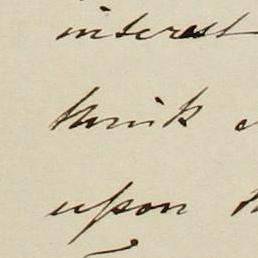 interest
think
upon